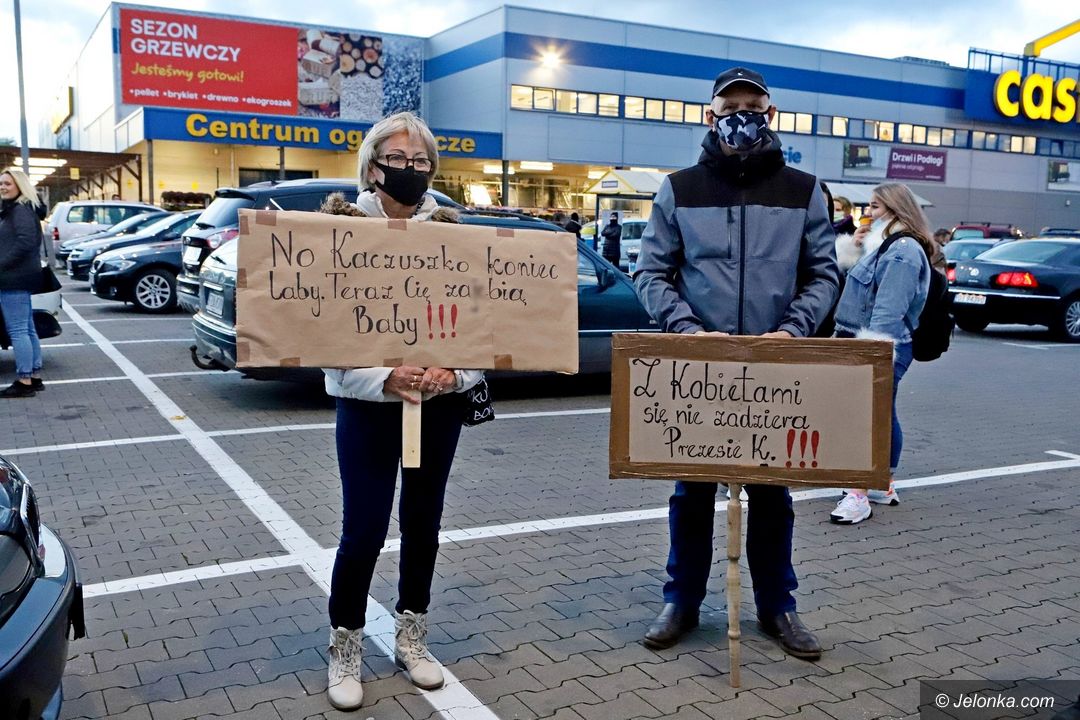 SEZON
GRZEWCZY
Jesteśmy gotowi!
•pellet •brykiet •drewno •ekogroszek
Centrum
Cas
Drzwi i Podłogi
No Kaczuszko koniec
laby. Teraz Cię za bią
Baby!!!
Z Kobietami
się nie zadziera
Prezesie K. !!!
© Jelonka.com